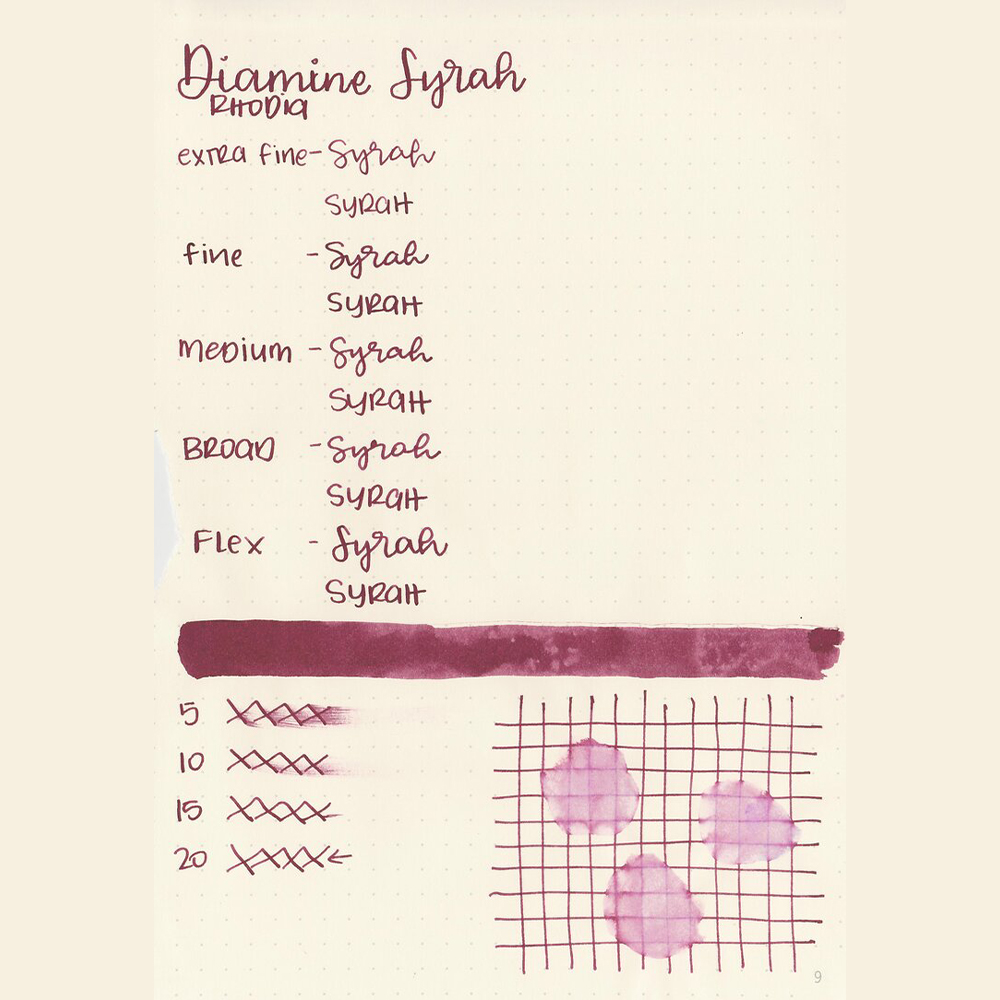 Diamine Syrah
RHODIA
extra fine - Syrah
SYRAH
fine - Syrah
SYRAH
Medium - Syrah
SYRAH
BROAD - Syrah
SYRAH
Flex - Syrah
SYRAH
5 XXXX
10 XXXX
15 XXXX
20 XXXX←
9